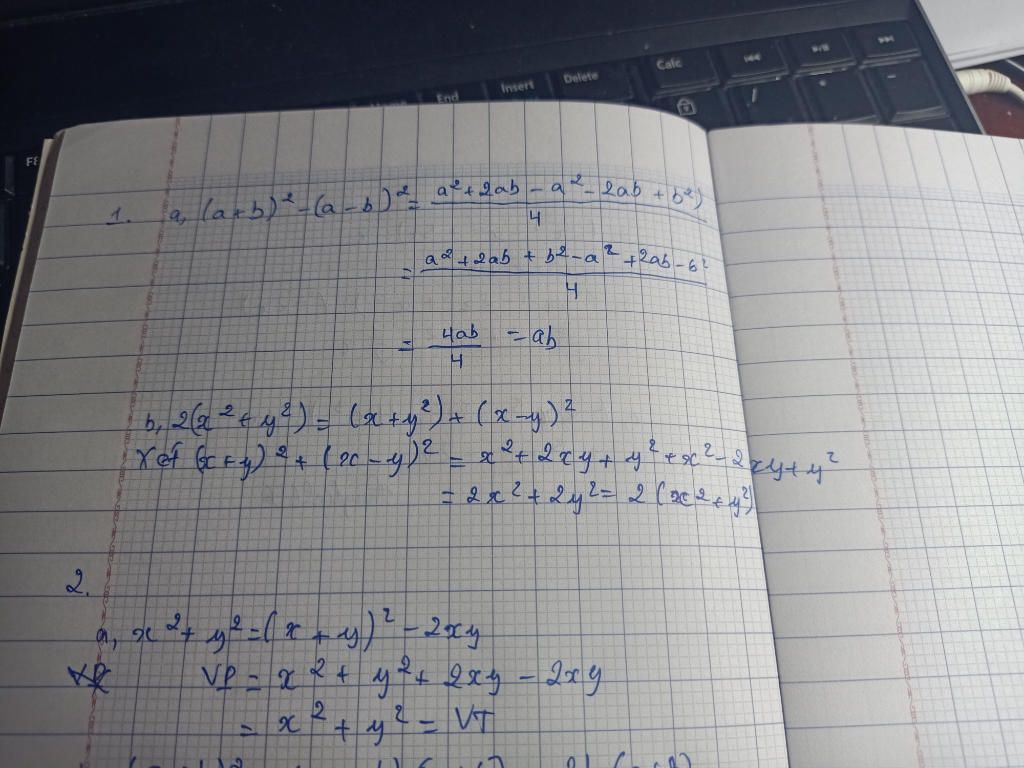 End Insert Delete Calc
F8
1. a, (a+b)² - (a-b)² = (a² + 2ab - a² - 2ab + b²)/4
= (a² + 2ab + b² - a² + 2ab - b²)/4
= 4ab/4 = ab
b, 2(x² + y²) = (x + y²) + (x - y)²
Xét (x + y)² + (x - y)² = x² + 2xy + y² + x² - 2xy + y²
= 2x² + 2y² = 2(x² + y²)
2.
a, x² + y² = (x + y)² - 2xy
VP = x² + y² + 2xy - 2xy
= x² + y² = VT